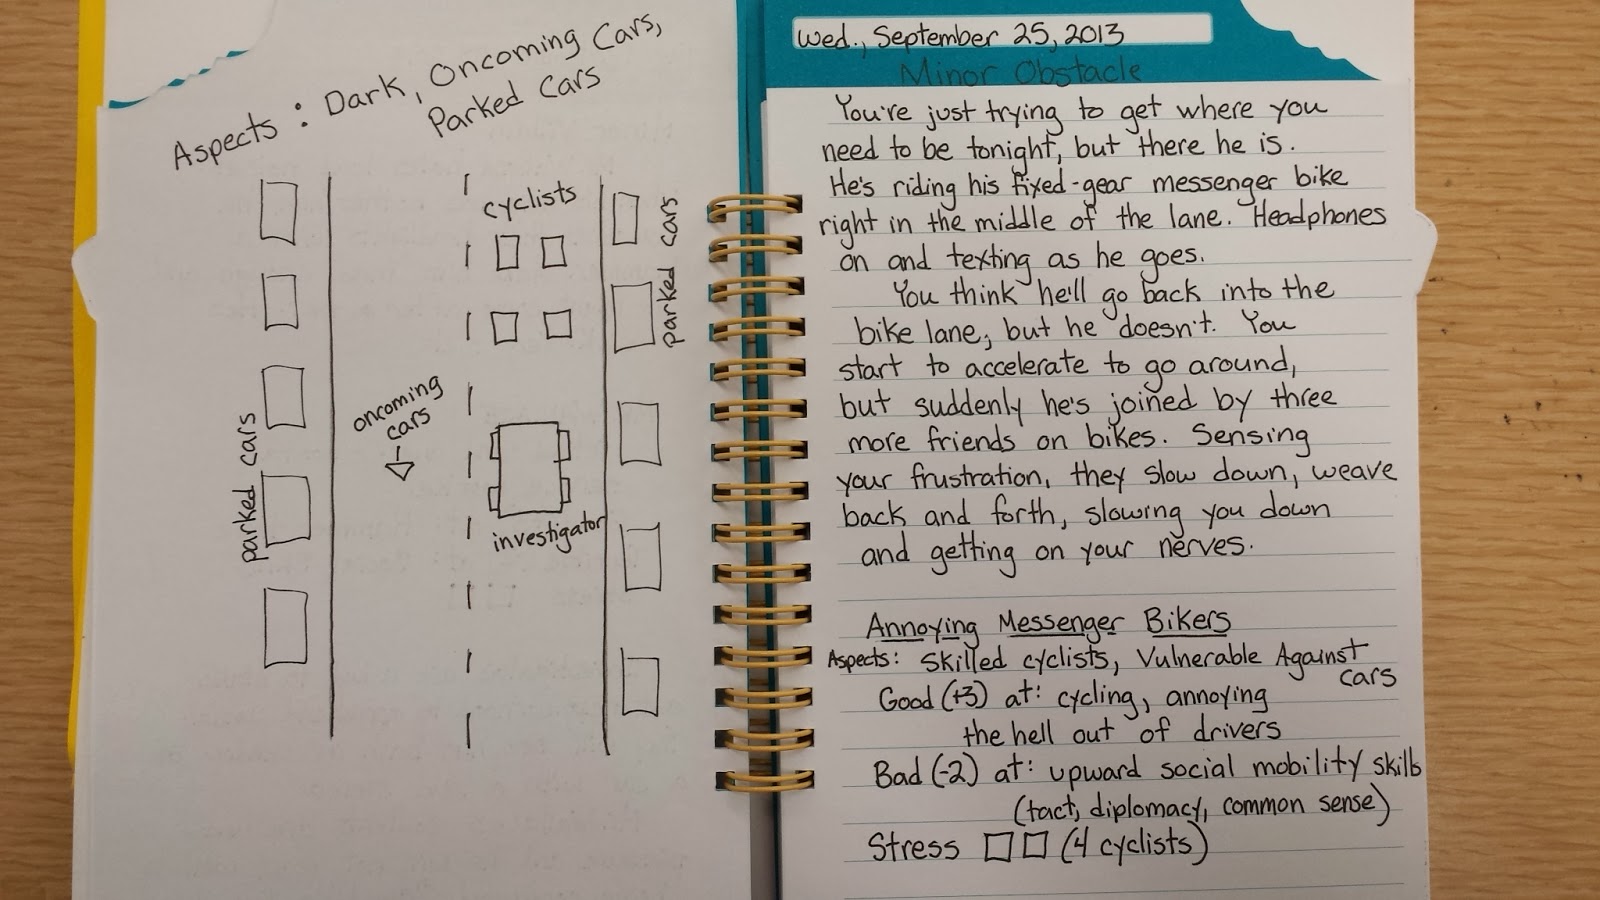 Aspects: Dark, Oncoming Cars,
Parked Cars
cyclists
parked cars
oncoming
cars
parked cars
investigator
Wed., September 25, 2013
Minor Obstacle
You're just trying to get where you
need to be tonight, but there he is.
He's riding his fixed-gear messenger bike
right in the middle of the lane. Headphones
on and texting as he goes.
You think he'll go back into the
bike lane, but he doesn't. You
start to accelerate to go around,
but suddenly he's joined by three
more friends on bikes. Sensing
your frustration, they slow down, weave
back and forth, slowing you down
and getting on your nerves.
Annoying Messenger Bikers
Aspects: Skilled cyclists, Vulnerable Against
cars
Good (+3) at: cycling, annoying
the hell out of drivers
Bad (-2) at: upward social mobility skills
(tact, diplomacy, common sense)
Stress □ □ (4 cyclists)